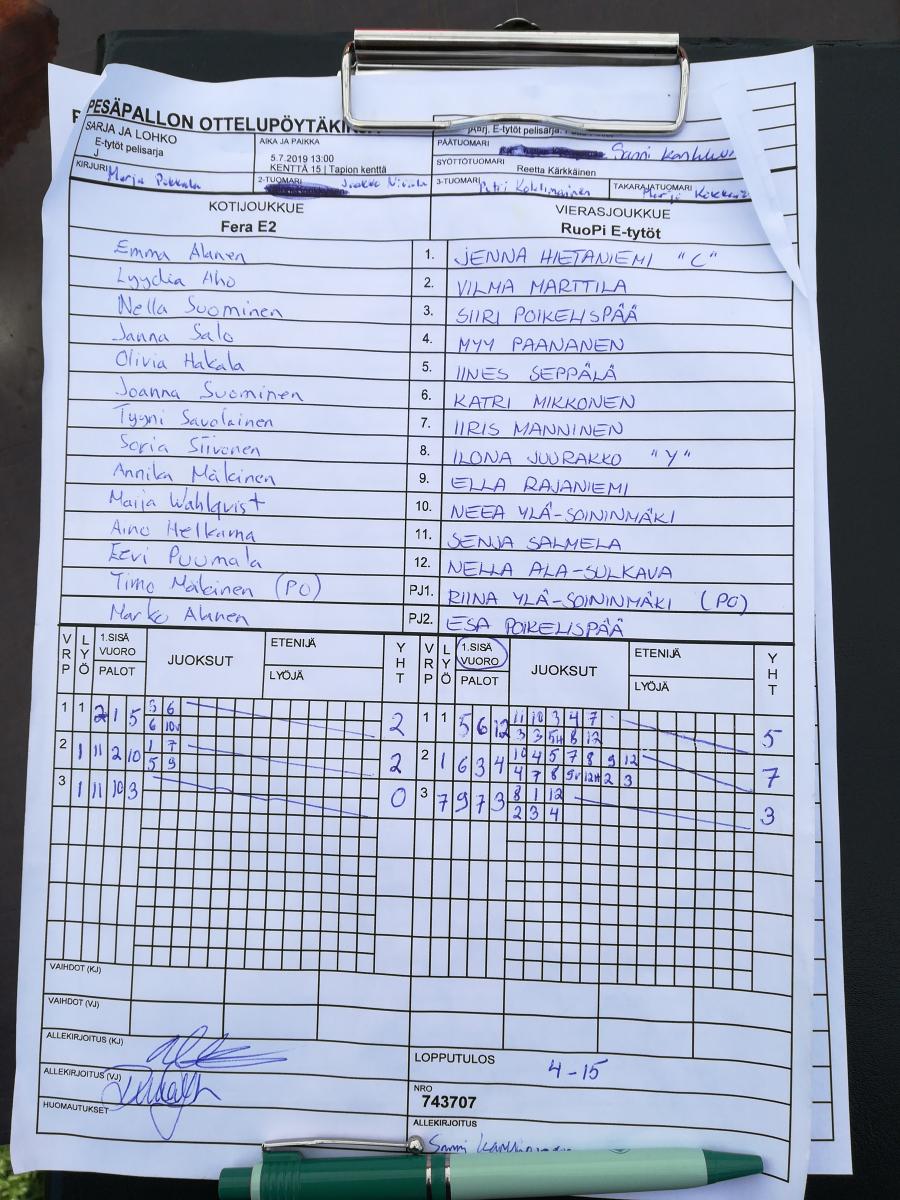 PESÄPALLON OTTELUPÖYTÄKIRJA
SARJA JA LOHKO
E-tytöt pelisarja
J
AIKA JA PAIKKA
5.7.2019 13:00
KENTTÄ 15 | Tapion kenttä
E-tytöt pelisarja
PÄÄTUOMARI
Sanni
SYÖTTÖTUOMARI
Reetta Kärkkäinen
KIRJURI Marja Pokkala
2-TUOMARI Jaakko Nivala
3-TUOMARI Petri Kohlmainen
TAKARAJATUOMARI Marja
KOTIJOUKKUE
Fera E2
VIERASJOUKKUE
RuoPi E-tytöt
Emma Alanen 1. JENNA HIETANIEMI "C"
Lyydia Aho 2. VILMA MARTTILA
Nella Suominen 3. SIIRI POIKELISPÄÄ
Janna Salo 4. MYY PAANANEN
Olivia Hakala 5. IINES SEPPÄLÄ
Joanna Suominen 6. KATRI MIKKONEN
Tyyni Savolainen 7. IIRIS MANNINEN
Sonja Siivonen 8. ILONA JUURAKKO "Y"
Annika Mäkinen 9. ELLA RAJANIEMI
Maija Wahlqvist 10. NEEA YLÄ-SOININMÄKI
Aino Helkama 11. SENJA SALMELA
Eevi Puumala 12. NELLA ALA-SULKAVA
Timo Mäkinen (PO) PJ1. RIINA YLÄ-SOININMÄKI (PO)
Marko Alanen PJ2. ESA POIKELISPÄÄ
VRP LYÖ 1.SISÄ VUORO PALOT JUOKSUT ETENIJÄ LYÖJÄ YHT VRP LYÖ 1.SISÄ VUORO PALOT JUOKSUT ETENIJÄ LYÖJÄ YHT
1 1 2 1 5 3 6 2 1 1 5 6 12 11 10 3 4 7 5
6 10v 3 3 5H 8 12
2 1 11 2 10 1 7 2 2 1 6 3 4 10 4 5 7 8 9 12 7
5 9 4 7 8 9v 12H 2 3
3 1 11 10 3 0 3 7 9 7 3 8 1 12 3
2 3 4
VAIHDOT (KJ)
VAIHDOT (VJ)
ALLEKIRJOITUS (KJ)
LOPPUTULOS 4-15
ALLEKIRJOITUS (VJ)
NRO
743707
HUOMAUTUKSET
ALLEKIRJOITUS
Sanni